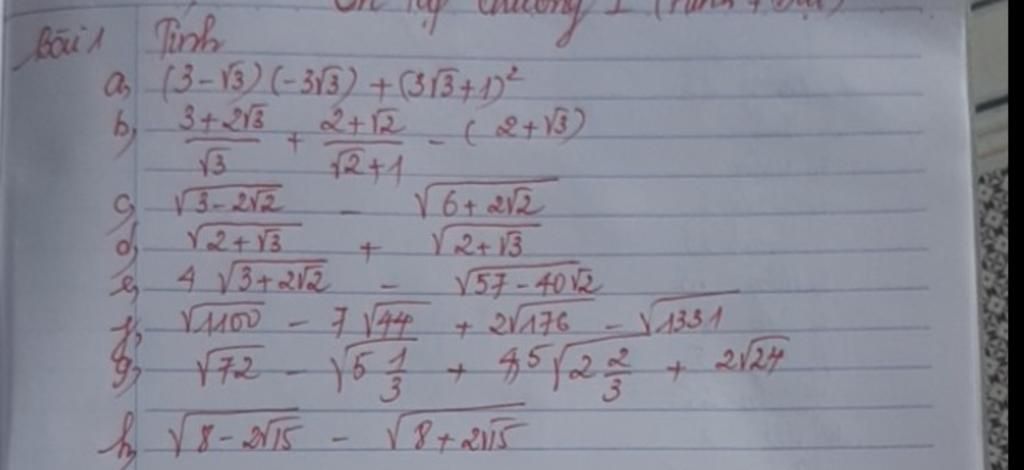 Bài 1 Tính
a, (3-√3)(-3√3) + (3√3+1)²
b, (3+2√3)/√3 + (2+√2)/(√2+1) - (2+√3)
c, √(3-2√2) - √(6+2√2)
d, √(2+√3) + √(2+√3)
e, 4√(3+2√2) - √(57-40√2)
f, √1100 - 7√44 + 2√176 - √1331
g, √72 - √(5 1/3) + 4,5√(2 2/3) + 2√24
h, √(8-2√15) - √(8+2√15)